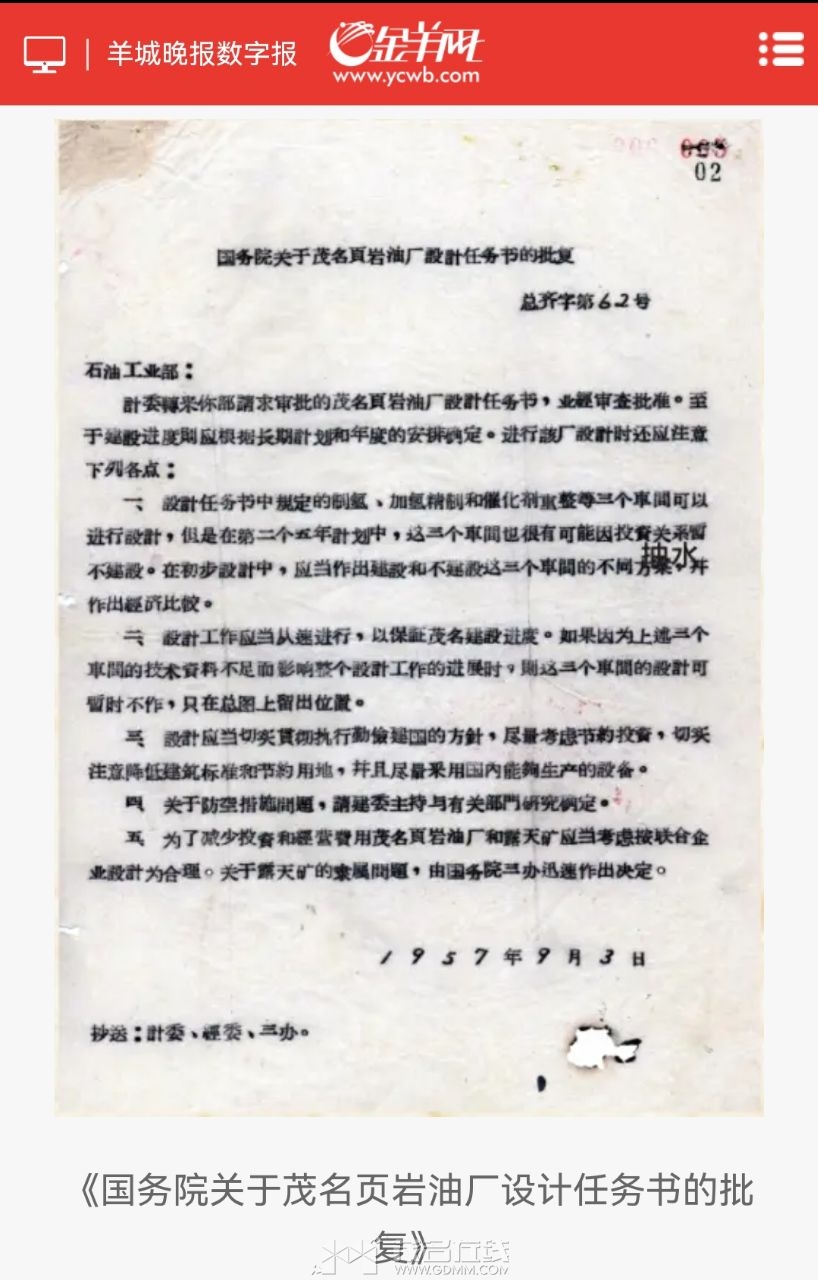 羊城晚报数字报
金羊网
www.ycwb.com
02
国务院关于茂名頁岩油厂設計任务书的批复
总齐字第62号
石油工业部：
計委轉来你部請求审批的茂名頁岩油厂設計任务书，业經审查批准。至
于建設进度則应根据长期計划和年度的安排确定。进行該厂設計时还应注意
下列各点：
一、設計任务书中規定的制氫、加氫精制和催化剂重整等三个車間可以
进行設計，但是在第二个五年計划中，这三个車間也很有可能因投資关系暫
不建設。在初步設計中，应当作出建設和不建設这三个車間的不同方案，并
抽水
作出經济比較。
二、設計工作应当从速进行，以保証茂名建設进度。如果因为上述三个
車間的技术資料不足而影响整个設計工作的进展时，則这三个車間的設計可
暫时不作，只在总图上留出位置。
三、設計应当切实貫彻执行勤儉建国的方針，尽量考虑节約投資，切实
注意降低建筑标准和节約用地，并且尽量采用国內能夠生产的設备。
四、关于防空措施問題，請建委主持与有关部門研究确定。
五、为了减少投資和經营費用茂名頁岩油厂和露天矿应当考虑按联合企
业設計为合理。关于露天矿的隶属問題，由国务院三办迅速作出决定。
1957年9月3日
抄送：計委、經委、三办。
《国务院关于茂名页岩油厂设计任务书的批
复》
茂名在线
WWW.GDMM.COM